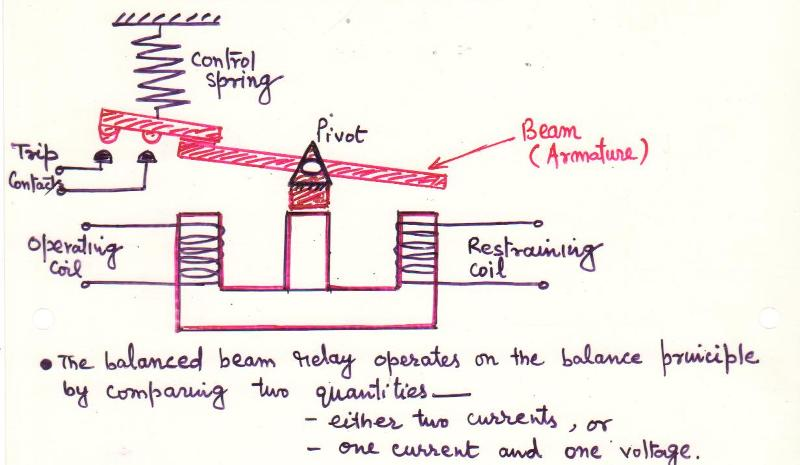 Control
spring
Pivot
Beam
(Armature)
Trip
Contacts
Operating
coil
Restraining
coil
• The balanced beam relay operates on the balance principle
by comparing two quantities —
– either two currents, or
– one current and one voltage.